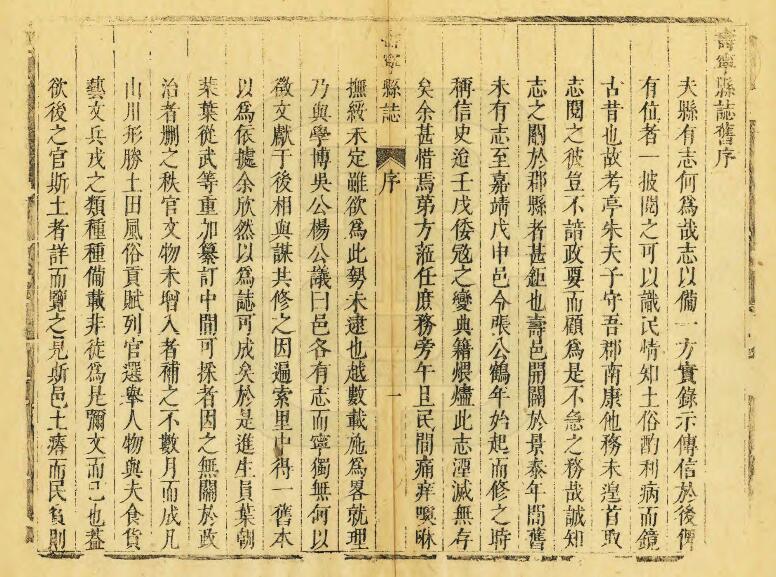 壽寧縣誌舊序
夫縣有志何為哉志以備一方實錄示傳信於後俾
有位者一披閱之可以識民情知土俗酌利病而鏡
古昔也故考亭朱夫子守吾郡南康他務未遑首取
志閱之彼豈不諳政要而顧為是不急之務哉誠知
志之關於郡縣者甚鉅也壽邑開闢於景泰年間舊
未有志至嘉靖戊申邑令張公鶴年始起而修之時
稱信史迨壬戌倭寇之變典籍煨燼此志湮滅無存
矣余甚惜焉第方蒞任庶務旁午且民間痛痒噢咻
壽寧縣誌
序
一
撫綏未定雖欲為此勢未逮也越數載施為畧就理
乃與學博吳公楊公議曰邑各有志而寧獨無何以
徵文獻于後相與謀共修之因遍索里中得一舊本
以為依據余欣然以為誌可成矣於是進生員葉朝
葉葉從武等重加纂訂中間可採者因之無關於政
治者刪之秩官文物未增入者補之不數月而成凡
山川形勝土田風俗貢賦列官選舉人物與夫食貨
藝文兵戎之類種種備載非徒為是彌文而已也蓋
欲後之官斯土者詳而覽之見斯邑土瘠而民貧則